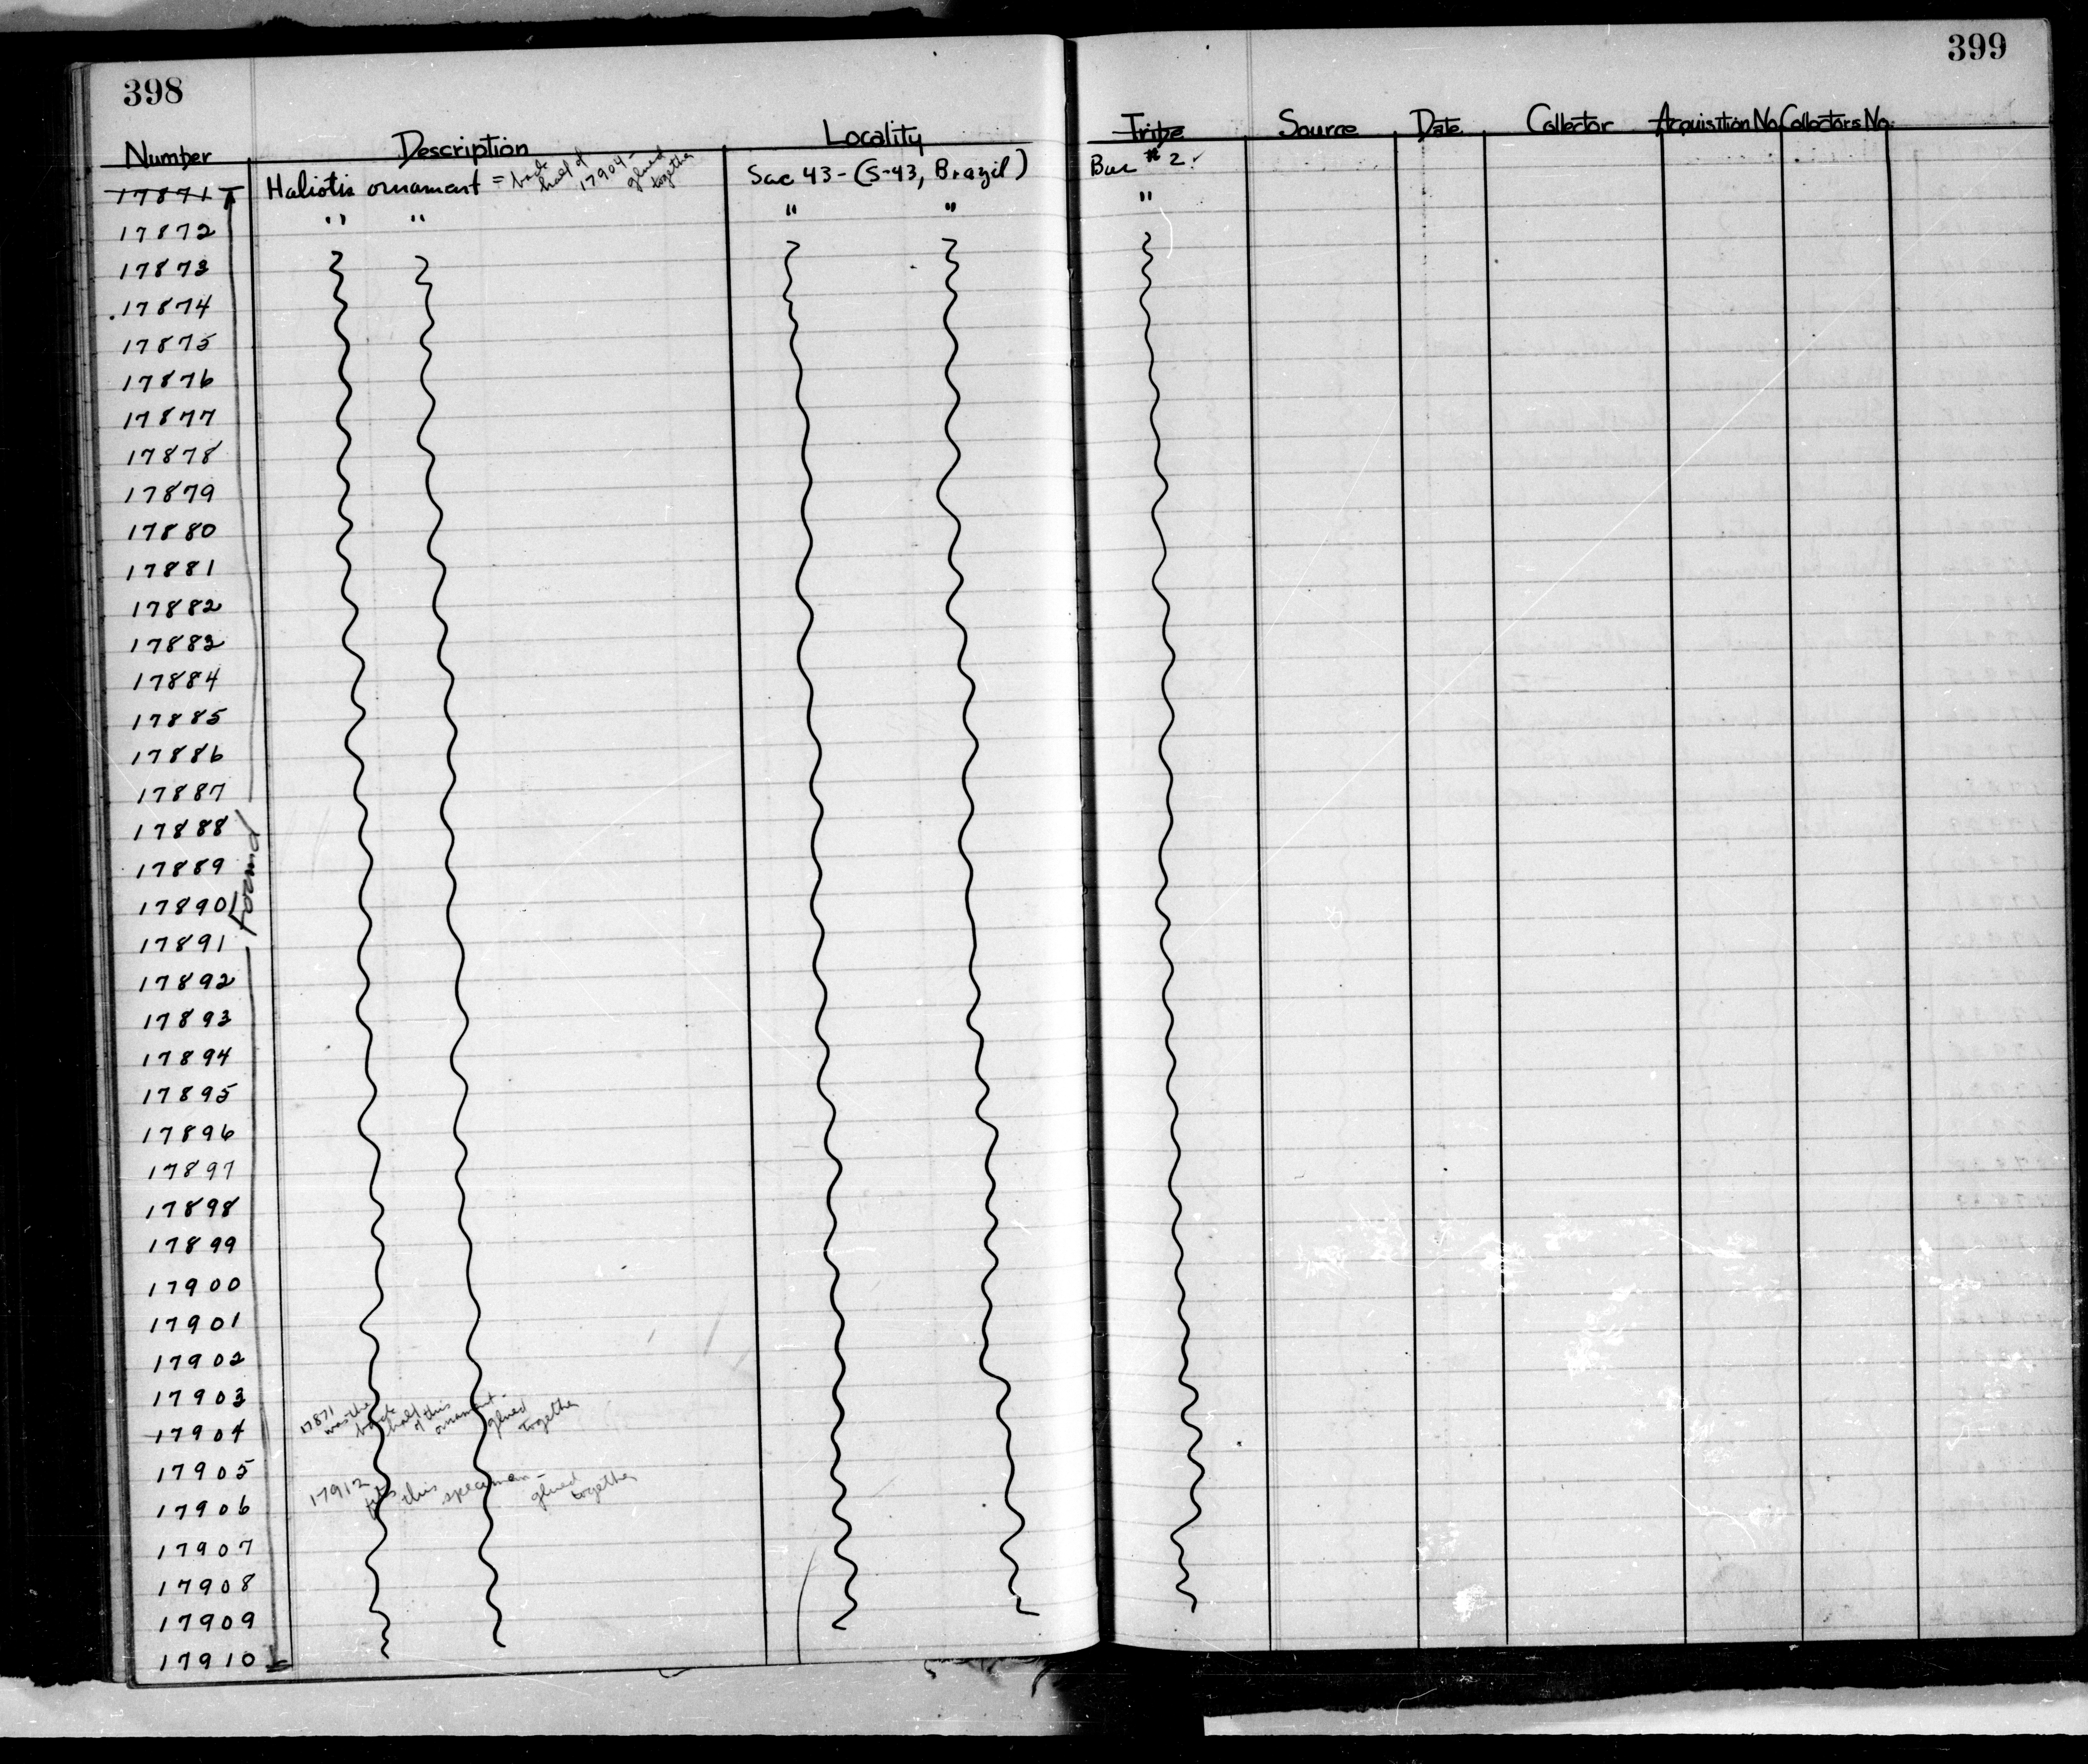 398
399
Number Description Locality Tribe Source Date Collector Acquisition No. Collectors No.
17871 Haliotis ornament = back half of 17904 - glued together Sac 43 - (S-43, Brazil) Bur #2.
17872 " " " " "
17873
17874
17875
17876
17877
17878
17879
17880
17881
17882
17883
17884
17885
17886
17887
17888
Found
17889
17890
17891
17892
17893
17894
17895
17896
17897
17898
17899
17900
17901
17902
17903
17904 17871 was the back half of this ornament - glued together
17905
17906 17912 fits this specimen - glued together
17907
17908
17909
17910